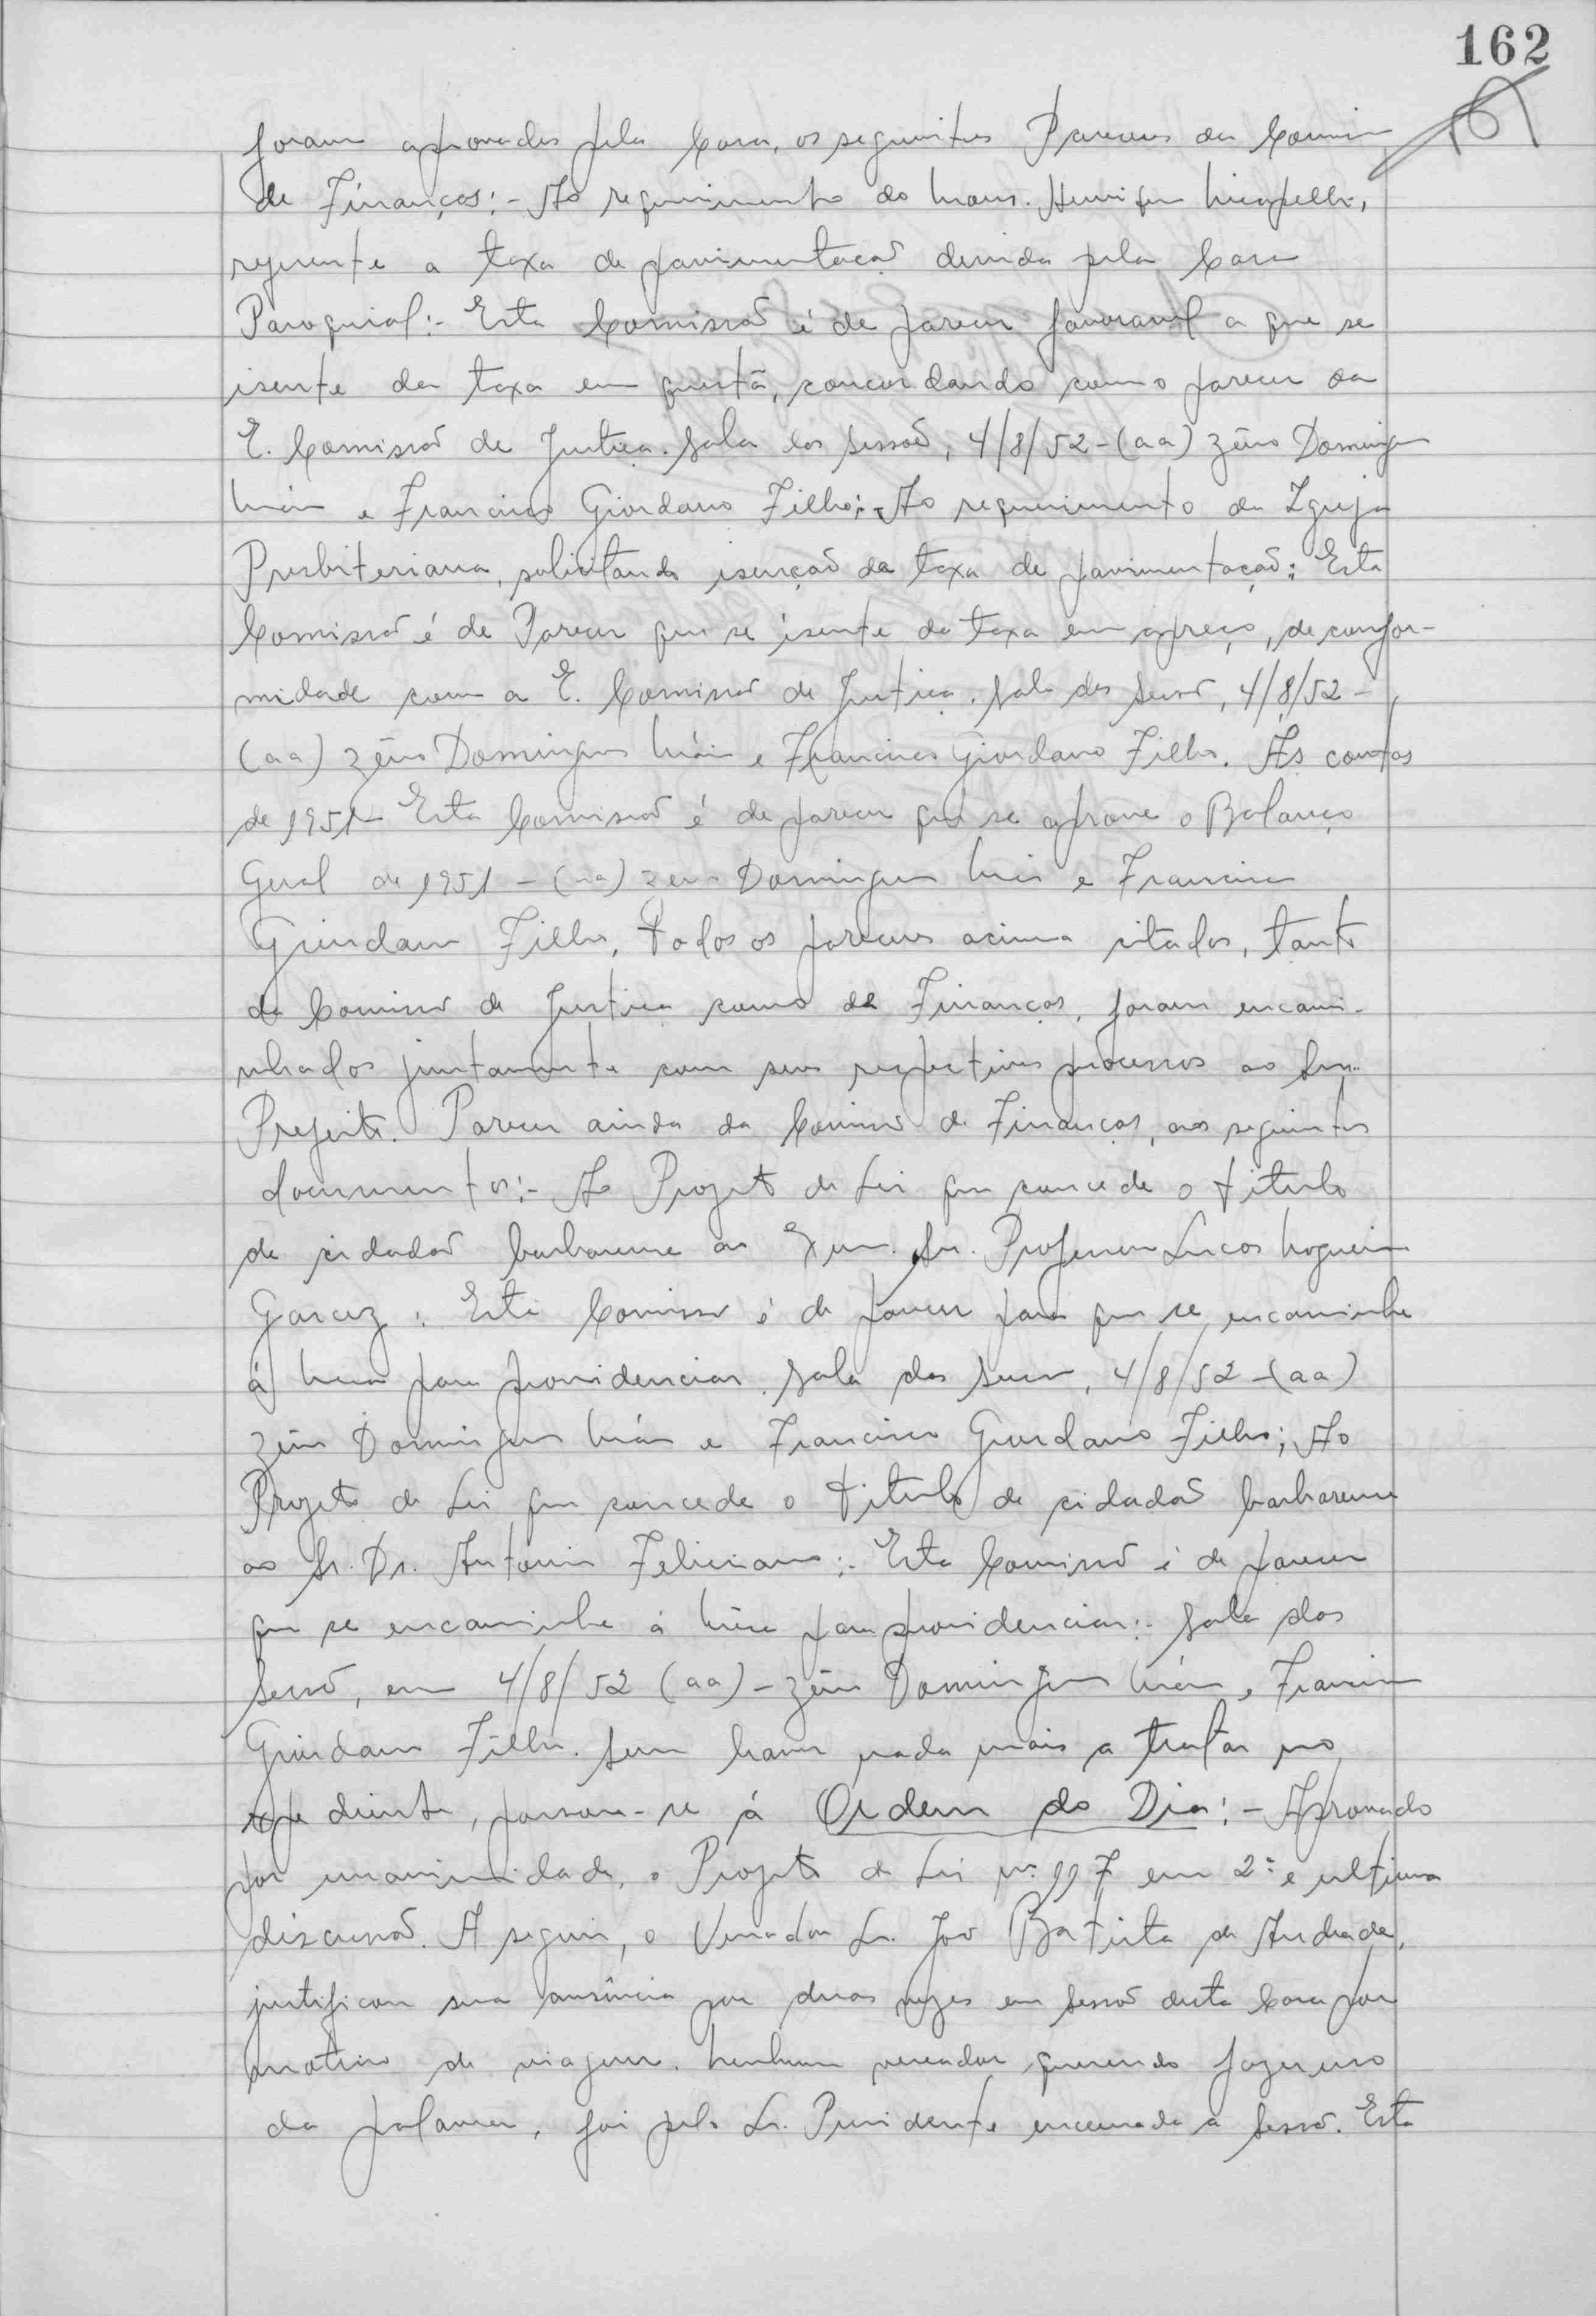 162
foram aprovados pela Casa, os seguintes Pareceres da Comissão
de Finanças:- Ao requerimento do Mons. Henrique Nicopelli,
referente a taxa de pavimentação devida pela Casa
Paroquial:- Esta Comissão é de parecer favoravel a que se
isente da taxa em questão, concordando com o parecer da
E. Comissão de Justiça. Sala das Sessões, 4/8/52 - (aa) Zéno Domingues
Maia e Francisco Giordano Filho; - Ao requerimento da Igreja
Presbiteriana, solicitando isenção da taxa de pavimentação: Esta
Comissão é de Parecer que se isente da taxa em apreço, de confor-
midade com a E. Comissão de Justiça. Sala das Sessões, 4/8/52 -
(aa) Zéno Domingues Maia e Francisco Giordano Filho. As contas
de 1951 - Esta Comissão é de parecer que se aprove o Balanço
Geral de 1951 - (aa) Zeno Domingues Maia e Francisco
Giordano Filho. Todos os pareceres acima citados, tanto
da Comissão de Justiça como de Finanças, foram encami-
nhados juntamente com seus respectivos processos ao Snr.
Prefeito. Parecer ainda da Comissão de Finanças, aos seguintes
documentos:- Ao Projeto de Lei que concede o titulo
de cidadão barbarense ao Exmo. Sr. Professor Lucas Nogueira
Garcez: Esta Comissão é de parecer para que se encaminhe
á Mesa para providencias. Sala das Sessões, 4/8/52 - (aa)
Zéno Domingues Maia e Francisco Giordano Filho; Ao
Projeto de Lei que concede o titulo de cidadão barbarense
ao Sr. Dr. Antonio Feliciano:- Esta Comissão é de parecer
que se encaminhe á Mesa para providencias:- Sala das
Sessões, em 4/8/52 (aa) - Zéno Domingues Maia e Francisco
Giordano Filho. Sem haver nada mais a tratar no
expediente, passou-se á Ordem do Dia:- Aprovado
por unanimidade, o Projeto de Lei nº 997 em 2ª e ultima
discussão. A seguir, o Vereador Sr. João Batista de Andrade,
justificou sua ausência por duas vezes em sessão desta Casa por
motivo de viagem. Nenhum vereador querendo fazer uso
da palavra, foi pelo Sr. Presidente encerrada a sessão. Esta